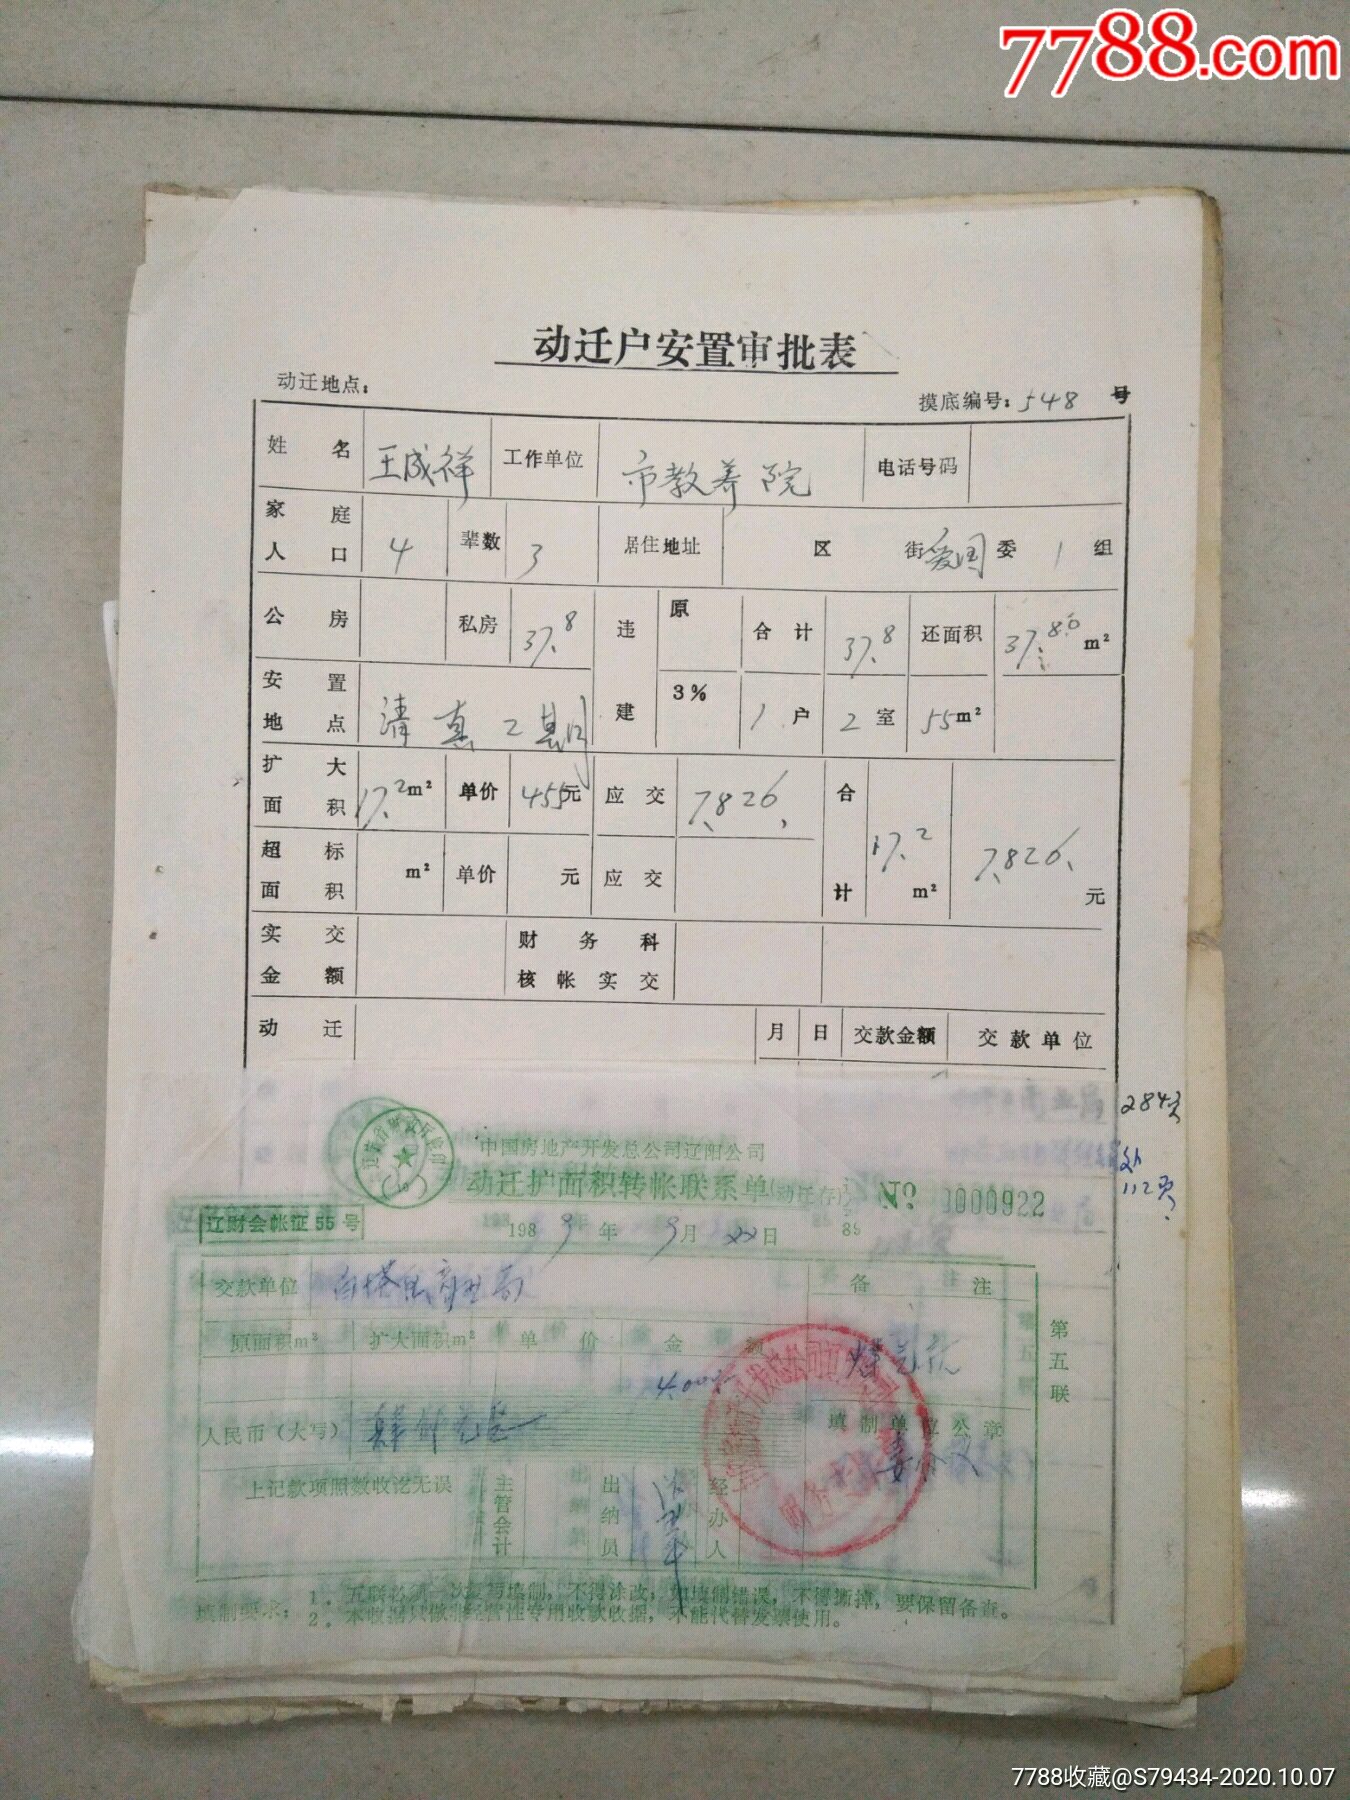 7788.com
动迁户安置审批表
动迁地点：
摸底编号：548 号
姓名 王成祥 工作单位 市教养院 电话号码
家庭人口 4 辈数 3 居住地址 区 街 爱国 委 1 组
公房 私房 37.8 违建 原 合计 37.8 还面积 37.80 m²
安置地点 清真2期 3% 1 户 2 室 55 m²
扩大面积 17.2 m² 单价 455 元 应交 7,826. 合计 17.2 m² 7,826. 元
超标面积 m² 单价 元 应交
实交金额 财务科核帐实交
动迁 月 日 交款金额 交款单位
284页
112页
中国房地产开发总公司辽阳公司
动迁扩面积转帐联系单(动迁存) № 0000922
辽财会帐证55号
1989年9月22日 89
交款单位 白塔区商业局 备注
原面积m² 扩大面积m² 单价 金额
4000
人民币（大写） 肆仟元整 填制单位公章
上记款项照数收讫无误 主管会计 出纳员 经办人
第五联
填制要求：1．五联必须一次复写填制，不得涂改；如填制错误，不得撕掉，要保留备查。
2．本收据只做非经营性专用收款收据，不能代替发票使用。
7788收藏@S79434-2020.10.07